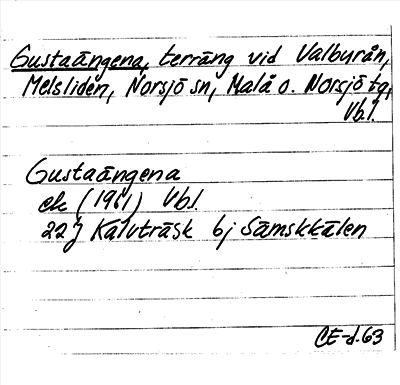 Gustaängena, terräng vid Valbyrån,
Melsliden, Norsjö sn, Malå o. Norsjö tg,
Vbl.
Gustaängena
ek (1961) Vbl.
22J Kalvträsk 6j Sämskkälen
CE-d.63